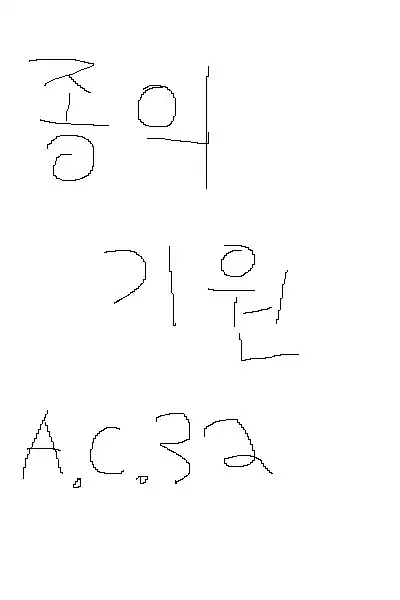 종의
기원
A.C.32